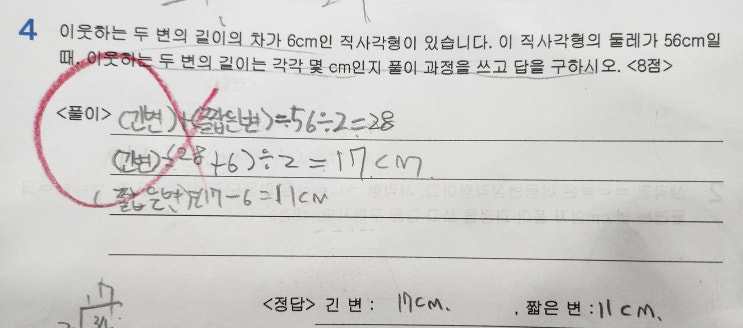 4 이웃하는 두 변의 길이의 차가 6cm인 직사각형이 있습니다. 이 직사각형의 둘레가 56cm일
때, 이웃하는 두 변의 길이는 각각 몇 cm인지 풀이 과정을 쓰고 답을 구하시오. <8점>
<풀이> (긴변)+(짧은변)=56÷2=28
(긴변)=(28+6)÷2=17cm
(짧은변)=17-6=11cm
<정답> 긴 변 : 17cm. , 짧은 변 : 11cm.
17